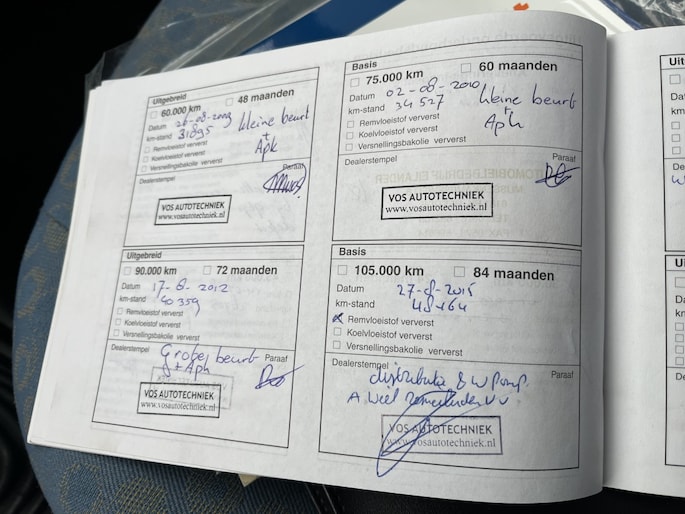 Uitgebreid
60.000 km 48 maanden
Datum 26-08-2009
km-stand 31895 kleine beurt
Remvloeistof ververst +
Koelvloeistof ververst Apk
Versnellingsbakolie ververst
Dealerstempel Paraaf
VOS AUTOTECHNIEK
www.vosautotechniek.nl
Basis
75.000 km 60 maanden
Datum 02-08-2010 kleine beurt
km-stand 34527 +
Remvloeistof ververst Apk
Koelvloeistof ververst
Versnellingsbakolie ververst
Dealerstempel Paraaf
VOS AUTOTECHNIEK
www.vosautotechniek.nl
Uitgebreid
90.000 km 72 maanden
Datum 17-8-2012
km-stand 40359
Remvloeistof ververst
Koelvloeistof ververst
Versnellingsbakolie ververst
Dealerstempel Grote beurt Paraaf
+ Apk
VOS AUTOTECHNIEK
www.vosautotechniek.nl
Basis
105.000 km 84 maanden
Datum 27-8-2015
km-stand
Remvloeistof ververst
Koelvloeistof ververst
Versnellingsbakolie ververst
Dealerstempel Paraaf
distributie & W Pomp.
A Wiel remcilinder VV
VOS AUTOTECHNIEK
www.vosautotechniek.nl